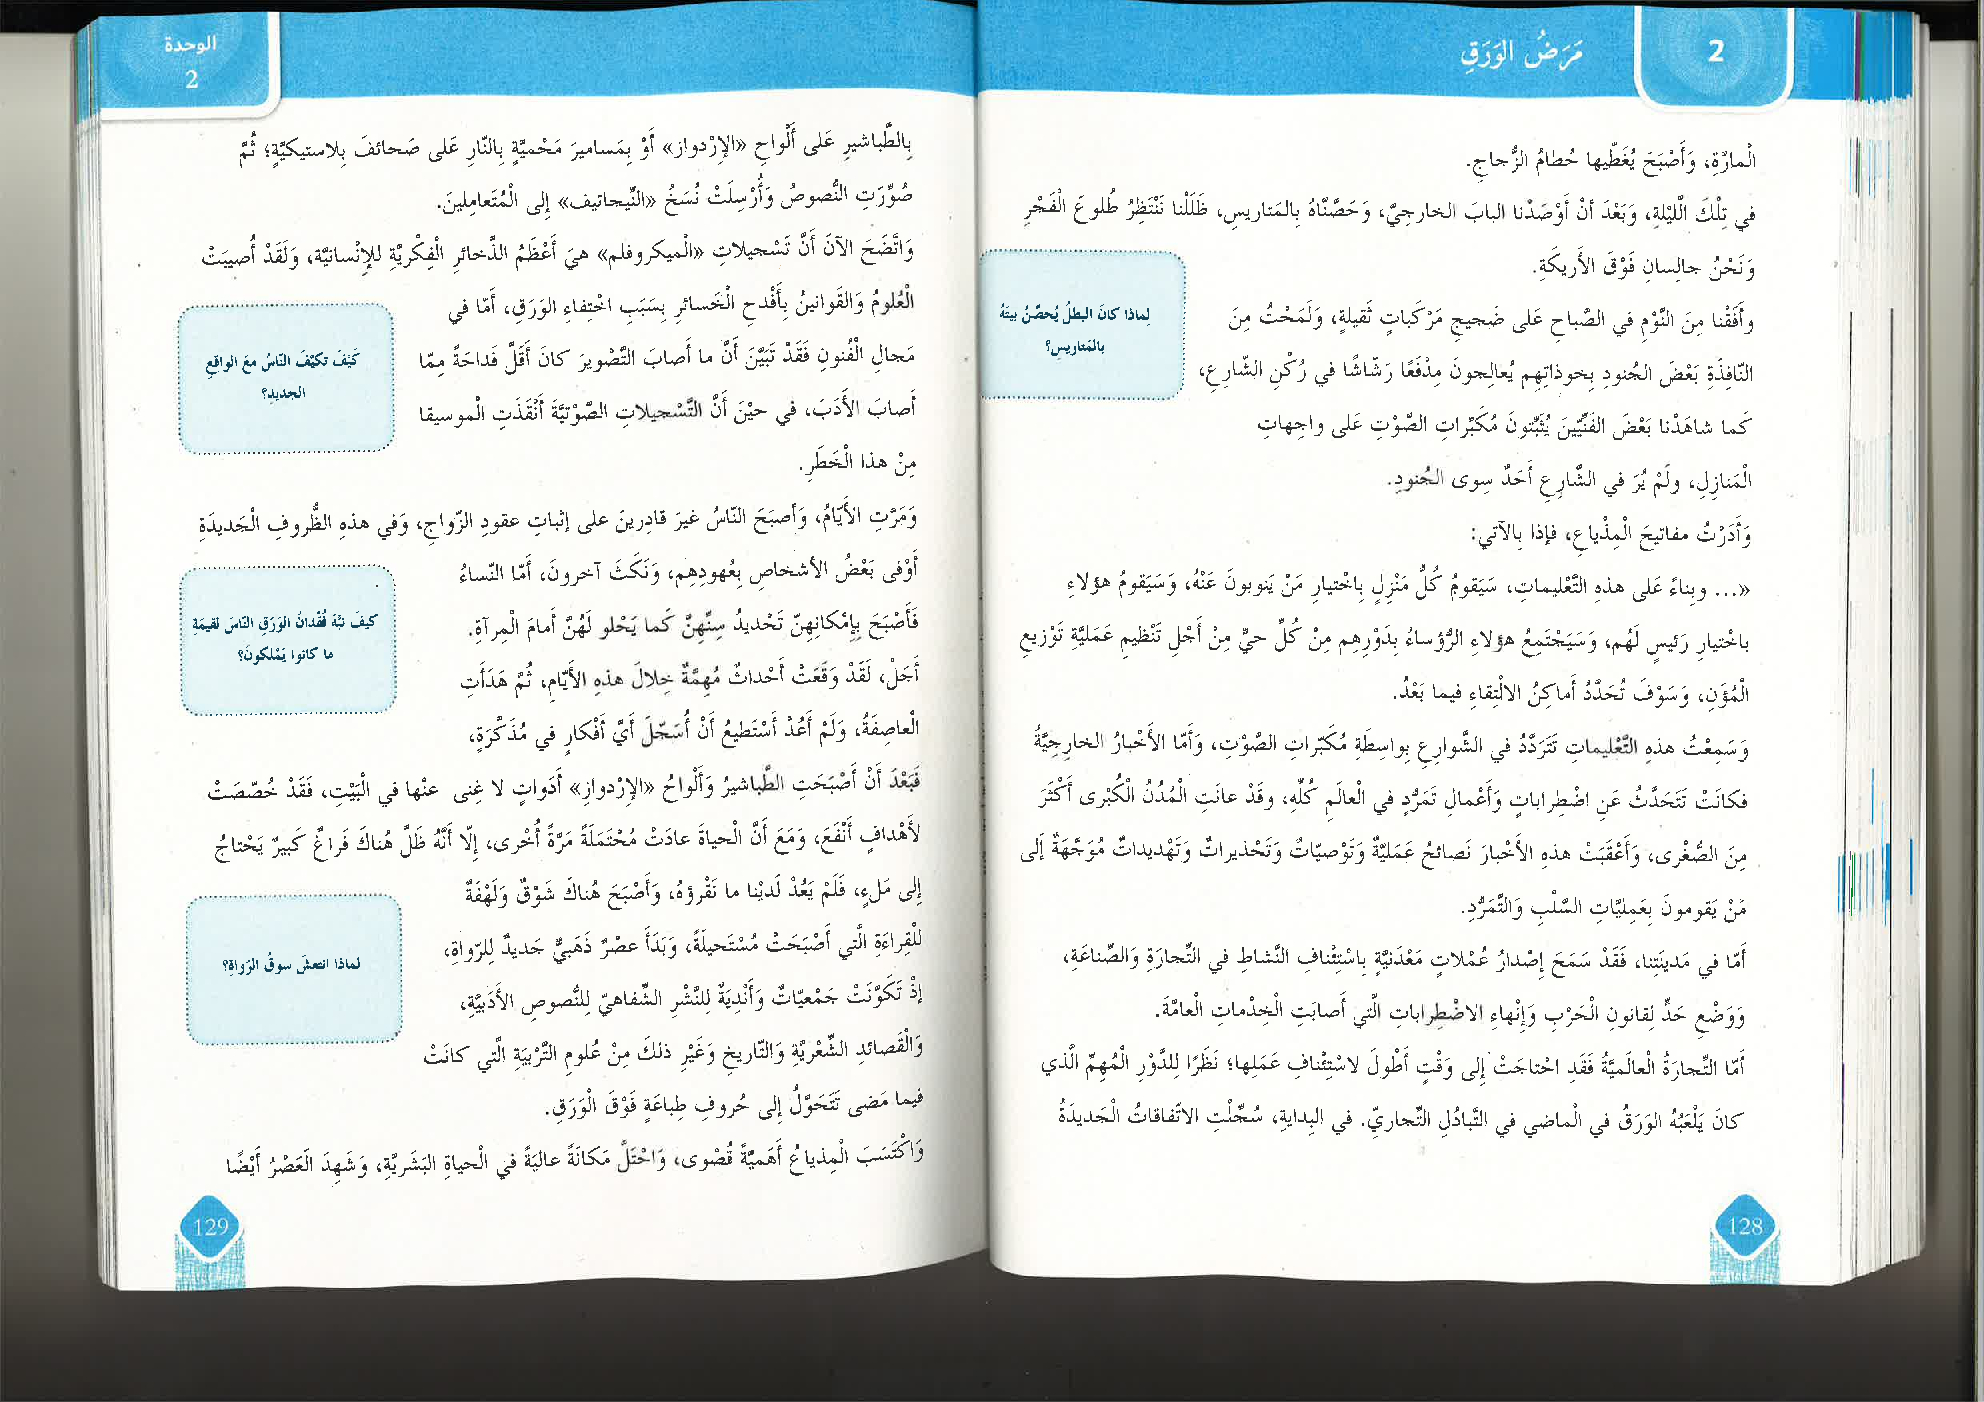 2
مَرَضُ الوَرَقِ
الْمارَّةِ، وَأَصْبَحَ يُغَطّيها حُطامُ الزُّجاجِ.
في تِلْكَ اللَّيْلةِ، وَبَعْدَ أنْ أوْصَدْنا البابَ الخارجِيَّ، وَحَصَّنّاهُ بِالمَتاريسِ، ظَلَلْنا نَنْتَظِرُ طُلوعَ الْفَجْرِ
وَنَحْنُ جالِسانِ فَوْقَ الأَريكَةِ.
وأَفَقْنا مِنَ النَّوْمِ في الصَّباحِ عَلى ضَجيجِ مَرْكَباتٍ ثَقيلةٍ، وَلَمَحْتُ مِنَ
النّافِذَةِ بَعْضَ الجُنودِ بِخوذاتِهِم يُعالِجونَ مِدْفَعًا رَشّاشًا في رُكْنِ الشّارِعِ،
كَما شاهَدْنا بَعْضَ الفَنّيّينَ يُثَبِّتونَ مُكَبِّراتِ الصَّوْتِ عَلى واجِهاتِ
الْمَنازِلِ، ولَمْ يُرَ في الشّارِعِ أَحَدٌ سِوى الجُنودِ.
لِماذا كانَ البطلُ يُحصِّنُ بيتَهُ
بالمَتاريسِ؟
وَأَدَرْتُ مفاتيحَ الْمِذْياعِ، فإذا بِالآتي:
«... وبِناءً عَلى هذهِ التَّعْليماتِ، سَيَقومُ كُلُّ مَنْزِلٍ بِاخْتيارِ مَنْ يَنوبونَ عَنْهُ، وَسَيَقومُ هؤلاءِ
باخْتيارِ رَئيسٍ لَهُم، وَسَيَجْتَمِعُ هؤلاءِ الرُّؤساءُ بِدَوْرِهِم مِنْ كُلِّ حيٍّ مِنْ أَجْلِ تَنْظيمِ عَمَليَّةِ تَوْزيعِ
الْمُؤَنِ، وَسَوْفَ تُحَدَّدُ أَماكِنُ الالْتِقاءِ فيما بَعْدُ.
وَسَمِعْتُ هذهِ التَّعْليماتِ تَتَرَدَّدُ في الشَّوارِعِ بِواسِطَةِ مُكَبِّراتِ الصَّوْتِ، وَأَمّا الأَخْبارُ الخارِجِيَّةُ
فكانَتْ تَتَحَدَّثُ عَنِ اضْطِراباتٍ وَأَعْمالِ تَمَرُّدٍ في الْعالَمِ كُلِّهِ، وقَدْ عانَتِ الْمُدُنُ الْكُبْرى أَكْثَرَ
مِنَ الصُّغْرى، وَأَعْقَبَتْ هذهِ الأَخْبارَ نَصائحُ عَمَليَّةٌ وَتَوْصيّاتٌ وَتَحْذيراتٌ وَتَهْديداتٌ مُوَجَّهَةٌ إلَى
مَنْ يَقومونَ بِعَمِليّاتِ السَّلْبِ وَالتَّمَرُّدِ.
أَمّا في مَدينَتِنا، فَقَدْ سَمَحَ إصْدارُ عُمْلاتٍ مَعْدَنيَّةٍ بِاسْتِئْنافِ النَّشاطِ في التِّجارَةِ وَالصِّناعَةِ،
وَوَضْعِ حَدٍّ لِقانونِ الْحَرْبِ وَإِنْهاءِ الاضْطِراباتِ الَّتي أَصابَتِ الْخِدْماتِ الْعامَّةَ.
أَمّا التِّجارَةُ الْعالَميَّةُ فَقَدِ احْتاجَتْ إلى وَقْتٍ أَطْولَ لاسْتِئْنافِ عَمَلِها؛ نَظَرًا لِلدَّوْرِ الْمُهِمِّ الَّذي
كانَ يَلْعَبُهُ الوَرَقُ في الْماضي في التَّبادُلِ التِّجاريّ. في البِدايةِ، سُجِّلَتِ الاتّفاقاتُ الْجَديدَةُ
128
الوحدة
2
بِالطَّباشيرِ عَلى أَلْواحِ «الإرْدواز» أَوْ بِمَساميرَ مَحْميَّةٍ بِالنّارِ عَلى صَحائفَ بِلاستيكيَّةٍ؛ ثُمَّ
صُوِّرَتِ النُّصوصُ وَأُرْسِلَتْ نُسَخُ «النِّيجاتيف» إِلى الْمُتَعامِلينَ.
وَاتَّضَحَ الآنَ أَنَّ تَسْجيلاتِ «الْميكروفلم» هيَ أَعْظَمُ الذَّخائرِ الْفِكْريَّةِ للإِنْسانيَّة، وَلَقَدْ أُصيبَتْ
الْعُلومُ وَالقَوانينُ بِأَفْدحِ الْخَسائرِ بِسَبَبِ اخْتِفاءِ الوَرَقِ، أَمّا في
مَجالِ الْفُنونِ فَقَدْ تَبَيَّنَ أَنَّ ما أَصابَ التَّصْويرَ كانَ أَقَلَّ فَداحَةً مِمّا
أَصابَ الأَدَبَ، في حيْنَ أَنَّ التَّسْجيلاتِ الصَّوْتيَّةَ أَنْقَذَتِ الْموسيقا
مِنْ هذا الْخَطَرِ.
كَيْفَ تكيَّفَ النّاسُ معَ الواقعِ
الجديدِ؟
وَمَرَّتِ الأَيّامُ، وَأصبَحَ النّاسُ غيرَ قادِرينَ على إثباتِ عقودِ الزّواجِ، وَفي هذهِ الظُّروفِ الْجَديدَةِ
أَوْفى بَعْضُ الأشخاصِ بِعُهودِهِم، وَنَكَثَ آخرونَ، أَمّا النّساءُ
فَأَصْبَحَ بِإمْكانِهِنّ تَحْديدُ سِنِّهِنَّ كَما يَحْلو لَهُنَّ أَمامَ الْمِرآةِ.
أَجَلْ، لَقَدْ وَقَعَتْ أَحْداثٌ مُهِمَّةٌ خِلالَ هذهِ الأَيّامِ، ثُمَّ هَدَأَتِ
الْعاصِفَةُ، وَلَمْ أَعُدْ أَسْتَطيعُ أَنْ أُسَجّلَ أَيَّ أَفْكارٍ في مُذَكِّرَةٍ،
كيفَ نبَّهَ فُقْدانُ الوَرَقِ النّاسَ لقيمَةِ
ما كانوا يَمْلكونَ؟
فَبَعْدَ أَنْ أَصْبَحَتِ الطَّباشيرُ وَأَلْواحُ «الإرْدوازِ» أَدَواتٍ لا غِنى عنْها في الْبَيْتِ، فَقَدْ خُصّصَتْ
لأَهْدافٍ أَنْفَعَ، وَمَعَ أَنَّ الْحياةَ عادَتْ مُحْتَمَلَةً مَرَّةً أُخْرى، إلّا أَنَّهُ ظَلَّ هُناكَ فَراغٌ كَبيرٌ يَحْتاجُ
إلى مَلءٍ، فَلَمْ يَعُدْ لَدَيْنا ما نَقْرؤهُ، وَأَصْبَحَ هُناكَ شَوْقٌ وَلَهْفَةٌ
لِلْقِراءَةِ الَّتي أَصْبَحَتْ مُسْتَحيلَةً، وَبَدَأَ عصْرٌ ذَهَبيٌّ جَديدٌ لِلرّواةِ،
إذْ تَكَوَّنَتْ جَمْعيّاتٌ وَأَنْديَةٌ لِلنَّشْرِ الشَّفاهيّ لِلنُّصوصِ الأَدَبيَّةِ،
وَالْقَصائدِ الشِّعْريَّةِ وَالتّاريخِ وَغَيْرِ ذلكَ مِنْ عُلومِ التَّرْبيَةِ الَّتي كانَتْ
فيما مَضى تَتَحَوَّلُ إلى حُروفِ طِباعَةٍ فَوْقَ الْوَرَقِ.
لماذا انتعشَ سوقُ الرّواةِ؟
وَاكْتَسَبَ الْمِذياعُ أَهَميَّةً قُصْوى، وَاحْتَلَّ مَكانَةً عاليَةً في الْحياةِ البَشَريَّةِ، وَشَهِدَ الْعَصْرُ أَيْضًا
129